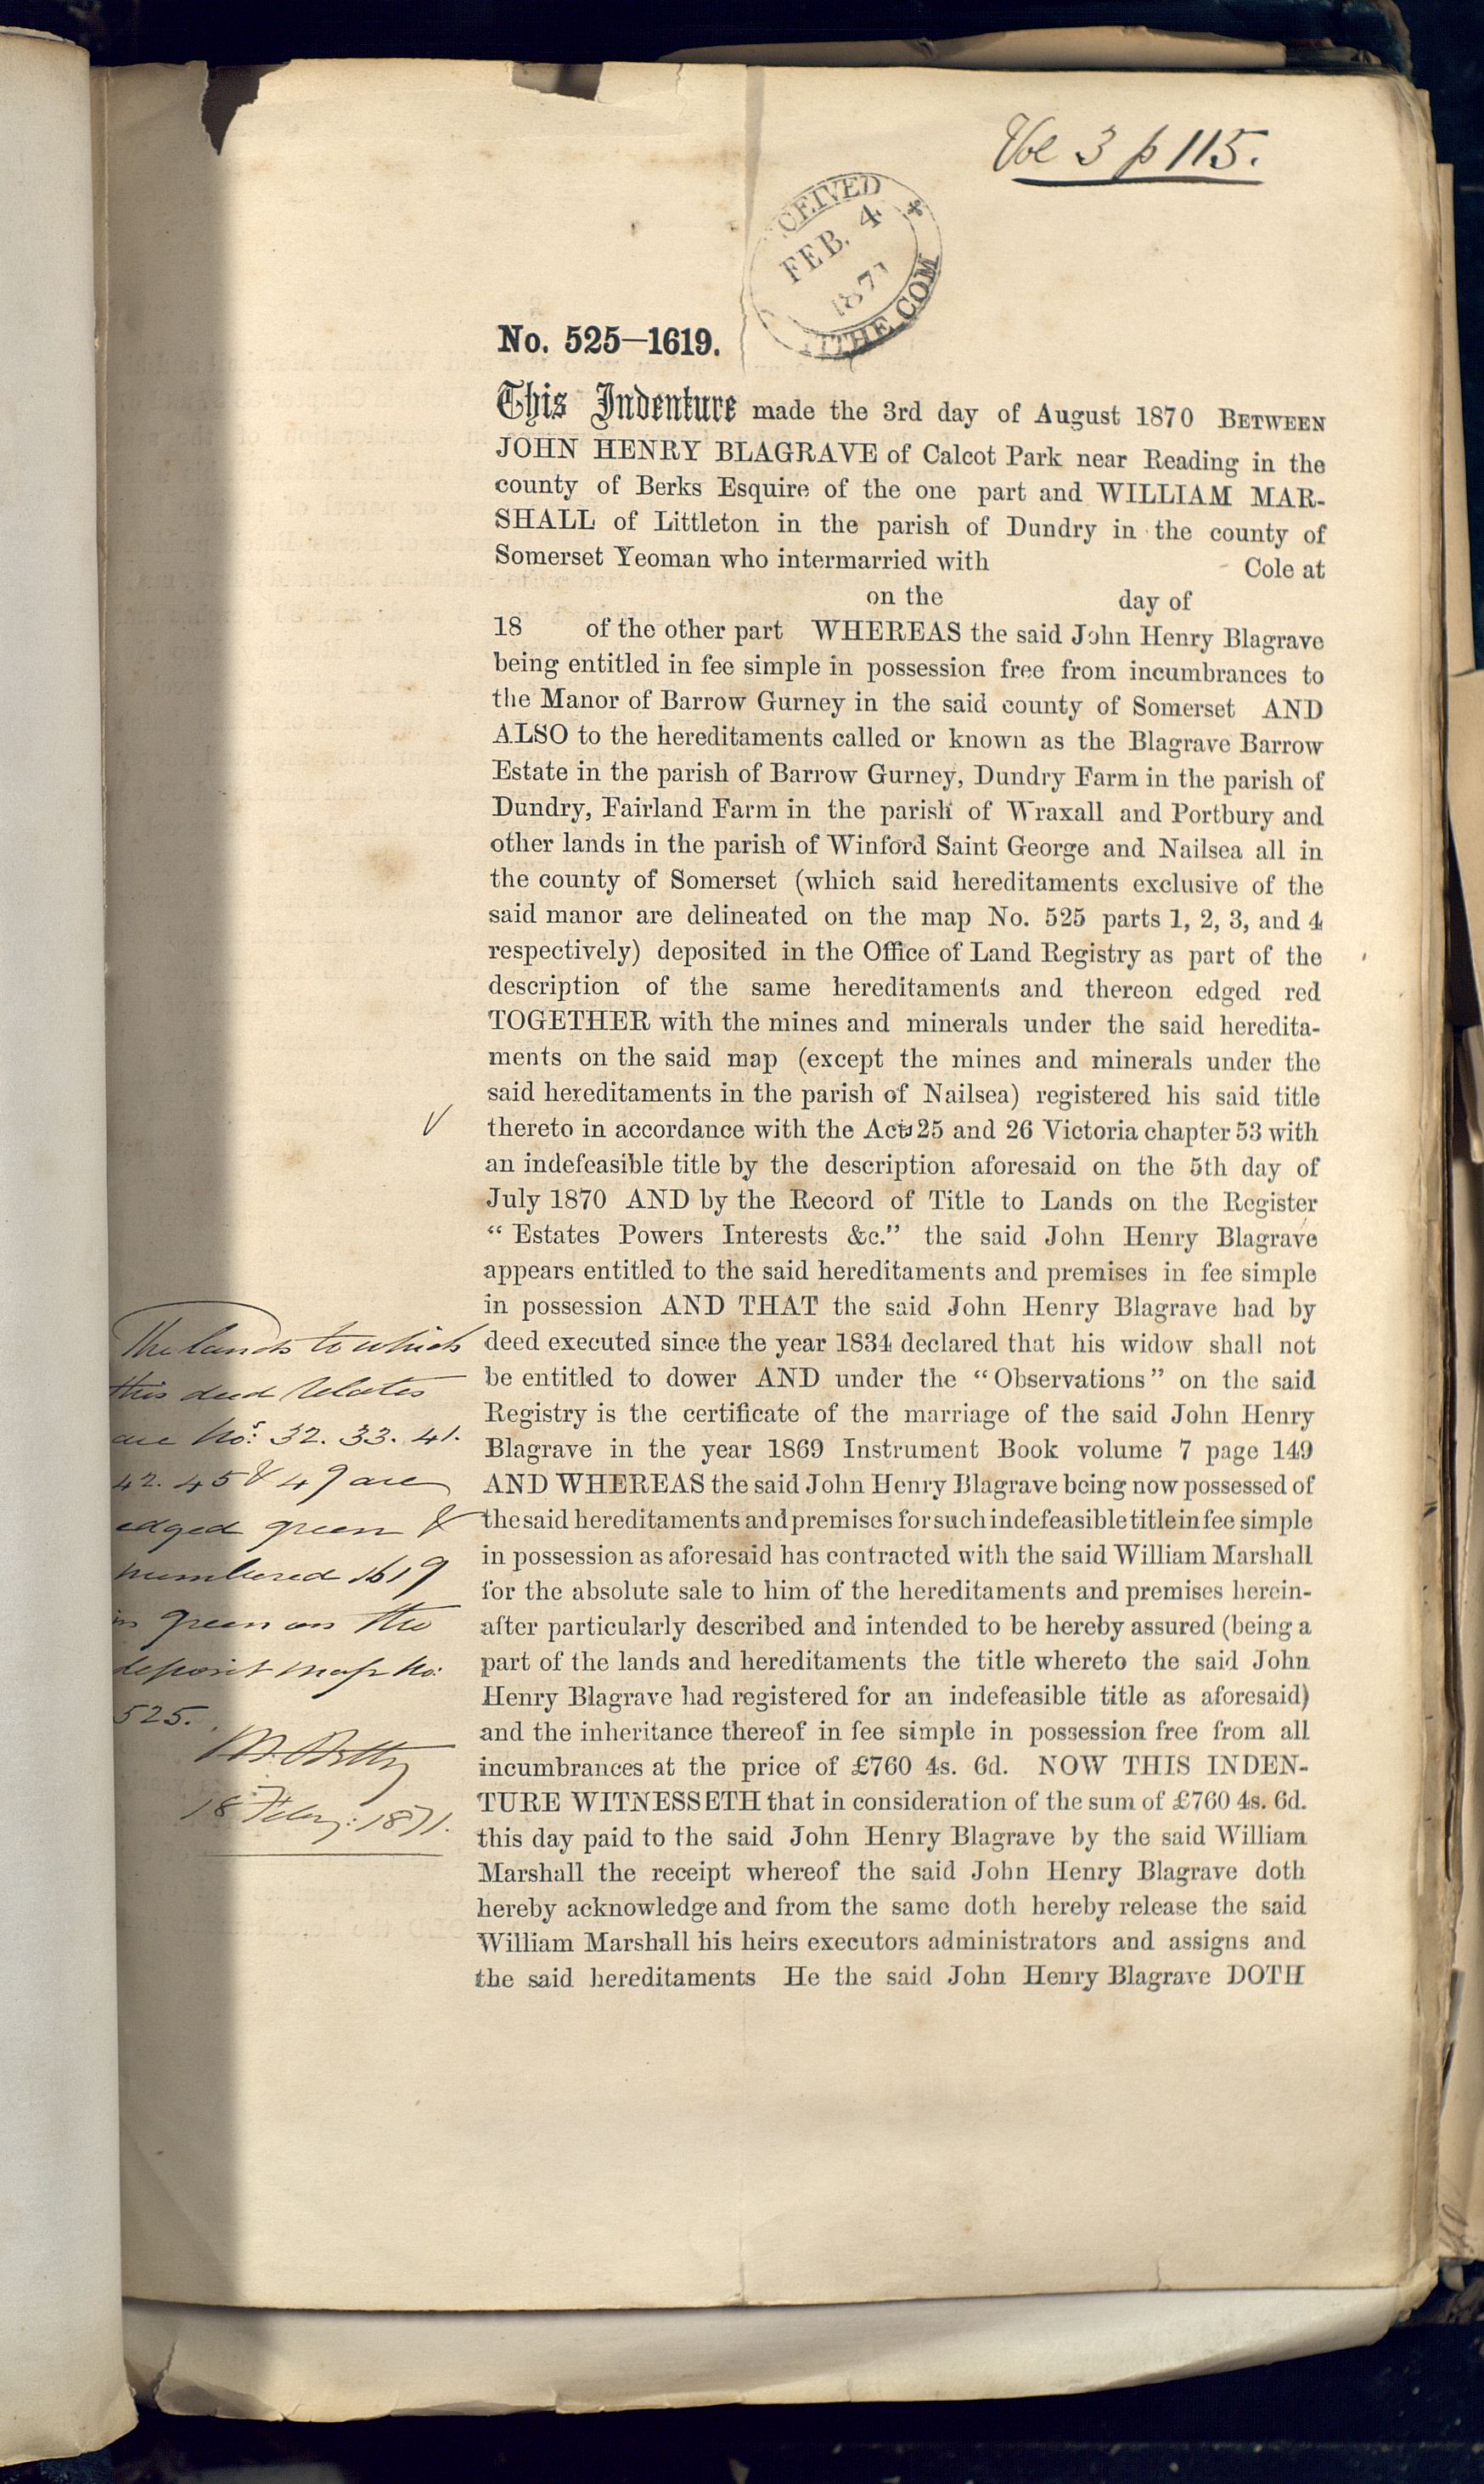 Vol 3 p 115.
CEIVED
FEB. 4
187
ITHE COM
No. 525—1619.
This Indenture made the 3rd day of August 1870 BETWEEN
JOHN HENRY BLAGRAVE of Calcot Park near Reading in the
county of Berks Esquire of the one part and WILLIAM MAR-
SHALL of Littleton in the parish of Dundry in the county of
Somerset Yeoman who intermarried with Cole at
on the day of
18 of the other part WHEREAS the said John Henry Blagrave
being entitled in fee simple in possession free from incumbrances to
the Manor of Barrow Gurney in the said county of Somerset AND
ALSO to the hereditaments called or known as the Blagrave Barrow
Estate in the parish of Barrow Gurney, Dundry Farm in the parish of
Dundry, Fairland Farm in the parish of Wraxall and Portbury and
other lands in the parish of Winford Saint George and Nailsea all in
the county of Somerset (which said hereditaments exclusive of the
said manor are delineated on the map No. 525 parts 1, 2, 3, and 4
respectively) deposited in the Office of Land Registry as part of the
description of the same hereditaments and thereon edged red
TOGETHER with the mines and minerals under the said heredita-
ments on the said map (except the mines and minerals under the
said hereditaments in the parish of Nailsea) registered his said title
thereto in accordance with the Acts 25 and 26 Victoria chapter 53 with
an indefeasible title by the description aforesaid on the 5th day of
July 1870 AND by the Record of Title to Lands on the Register
“Estates Powers Interests &c.” the said John Henry Blagrave
appears entitled to the said hereditaments and premises in fee simple
in possession AND THAT the said John Henry Blagrave had by
deed executed since the year 1834 declared that his widow shall not
be entitled to dower AND under the “Observations” on the said
Registry is the certificate of the marriage of the said John Henry
Blagrave in the year 1869 Instrument Book volume 7 page 149
AND WHEREAS the said John Henry Blagrave being now possessed of
the said hereditaments and premises for such indefeasible title in fee simple
in possession as aforesaid has contracted with the said William Marshall
for the absolute sale to him of the hereditaments and premises herein-
after particularly described and intended to be hereby assured (being a
part of the lands and hereditaments the title whereto the said John
Henry Blagrave had registered for an indefeasible title as aforesaid)
and the inheritance thereof in fee simple in possession free from all
incumbrances at the price of £760 4s. 6d. NOW THIS INDEN-
TURE WITNESSETH that in consideration of the sum of £760 4s. 6d.
this day paid to the said John Henry Blagrave by the said William
Marshall the receipt whereof the said John Henry Blagrave doth
hereby acknowledge and from the same doth hereby release the said
William Marshall his heirs executors administrators and assigns and
the said hereditaments He the said John Henry Blagrave DOTH
The lands to which
this deed relates
are Nos: 32. 33. 41.
42. 45 & 49 are
edged green &
numbered 1619
in green on the
deposit map No:
525.
18 Feby: 1871.